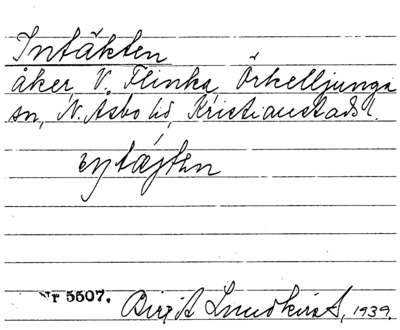 Intäkten
åker, V. Flinka, Örkelljunga
sn, N. Åsbo hd, Kristianstads l.
Nr 5507.
Birgit Lundkvist, 1939.